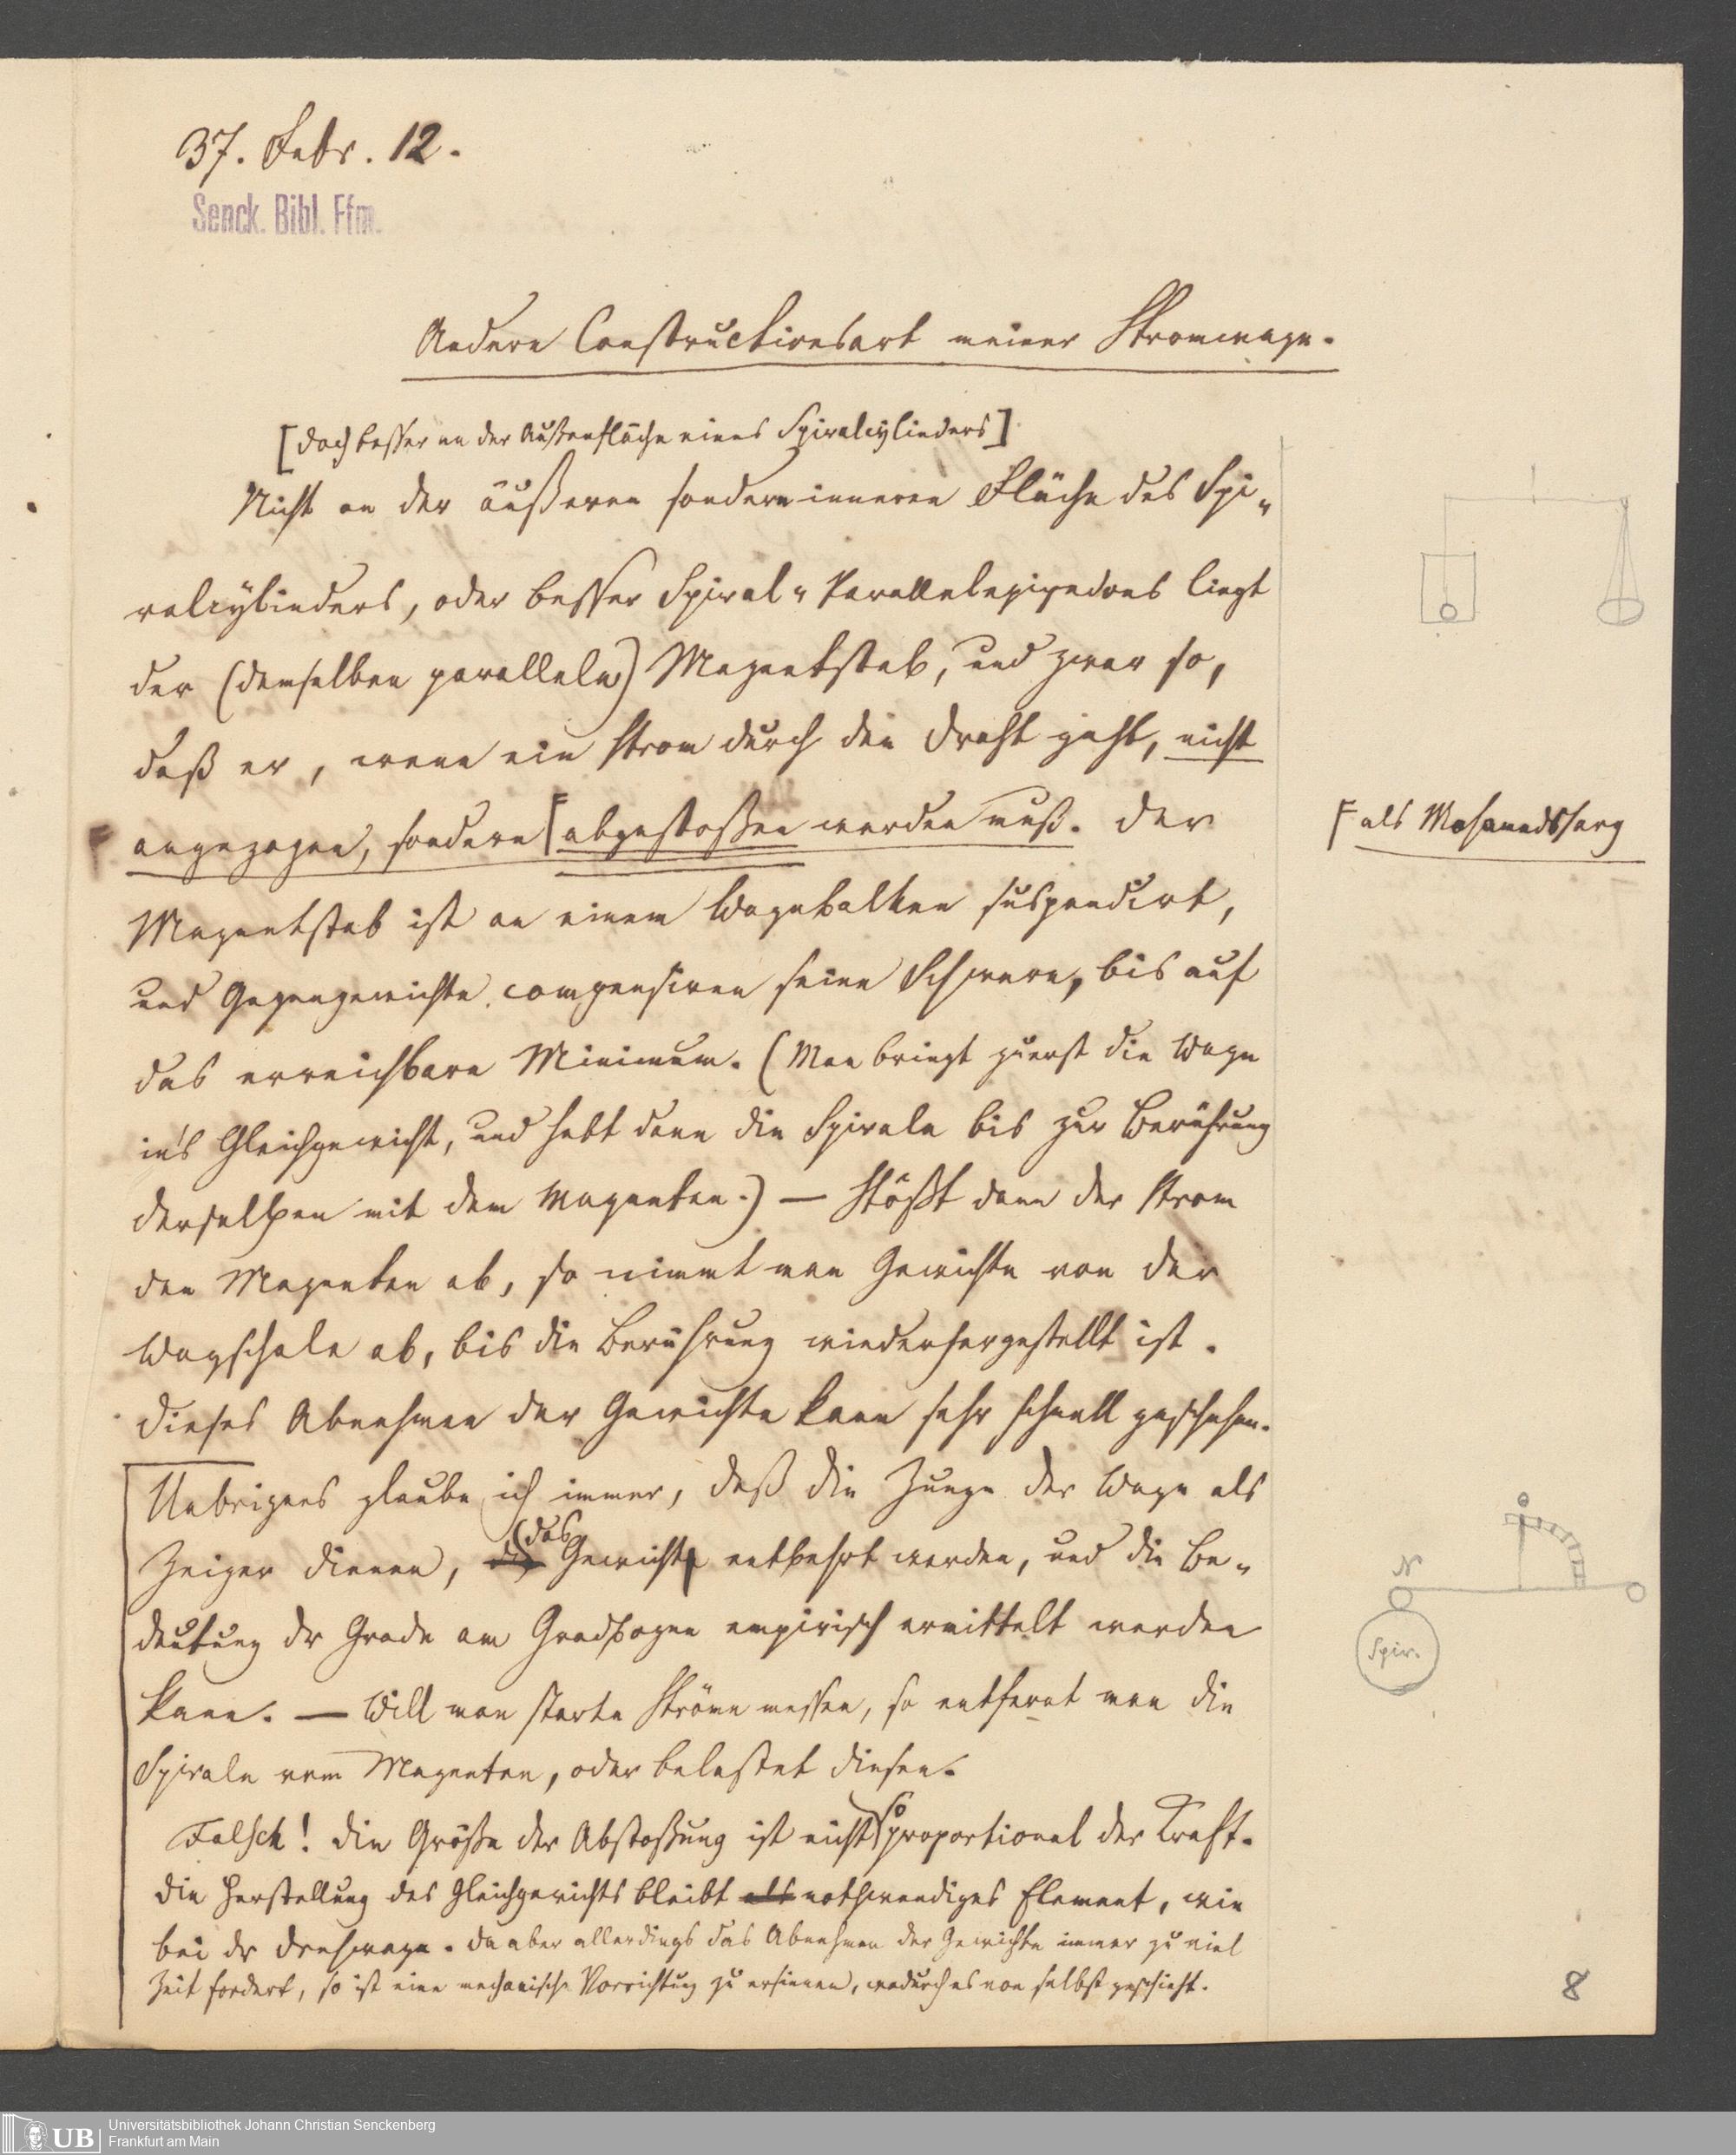 37. Febr. 12.
Senck. Bibl. Ffm.
Andere Constructionsart meiner Stromwage.
[doch besser an der Außenfläche eines Spiralcylinders]
Nicht an der äußeren sondern inneren Fläche des Spi-
ralcylinders, oder besser Spiral-Parallelepipedons liegt
der (demselben parallele) Magnetstab, und zwar so,
daß er, wenn ein Strom durch den Draht geht, nicht
angezogen, sondern abgestoßen werden muß. Der
als Mohamedssarg
Magnetstab ist an einem Wagebalken suspendirt,
und Gegengewichte compensiren seine Schwere, bis auf
das erreichbare Minimum. (Man bringt zuerst die Wage
in's Gleichgewicht, und hebt dann die Spirale bis zur Berührung
derselben mit dem Magneten.) — Stößt dann der Strom
den Magneten ab, so nimmt man Gewichte von der
Wagschale ab, bis die Berührung wiederhergestellt ist.
Dieses Abnehmen der Gewichte kann sehr schnell geschehen.
Uebrigens glaube ich immer, daß die Zunge der Wage als
Zeiger dienen, das Gewicht entbehrt werden, und die Be-
deutung dr Grade am Gradbogen empirisch ermittelt werden
kann. — Will man starke Ströme messen, so entfernt man die
Spirale vom Magneten, oder belastet diesen.
Falsch! Die Größe der Abstoßung ist nicht so proportional der Kraft.
Die Herstellung des Gleichgewichts bleibt als nothwendiges Element, wie
bei dr Drehwage. Da aber allerdings das Abnehmen der Gewichte immer zu viel
Zeit fordert, so ist eine mechanische Vorrichtung zu ersinnen, wodurch es von selbst geschieht.
N
Spir.
8
UB
Universitätsbibliothek Johann Christian Senckenberg
Frankfurt am Main